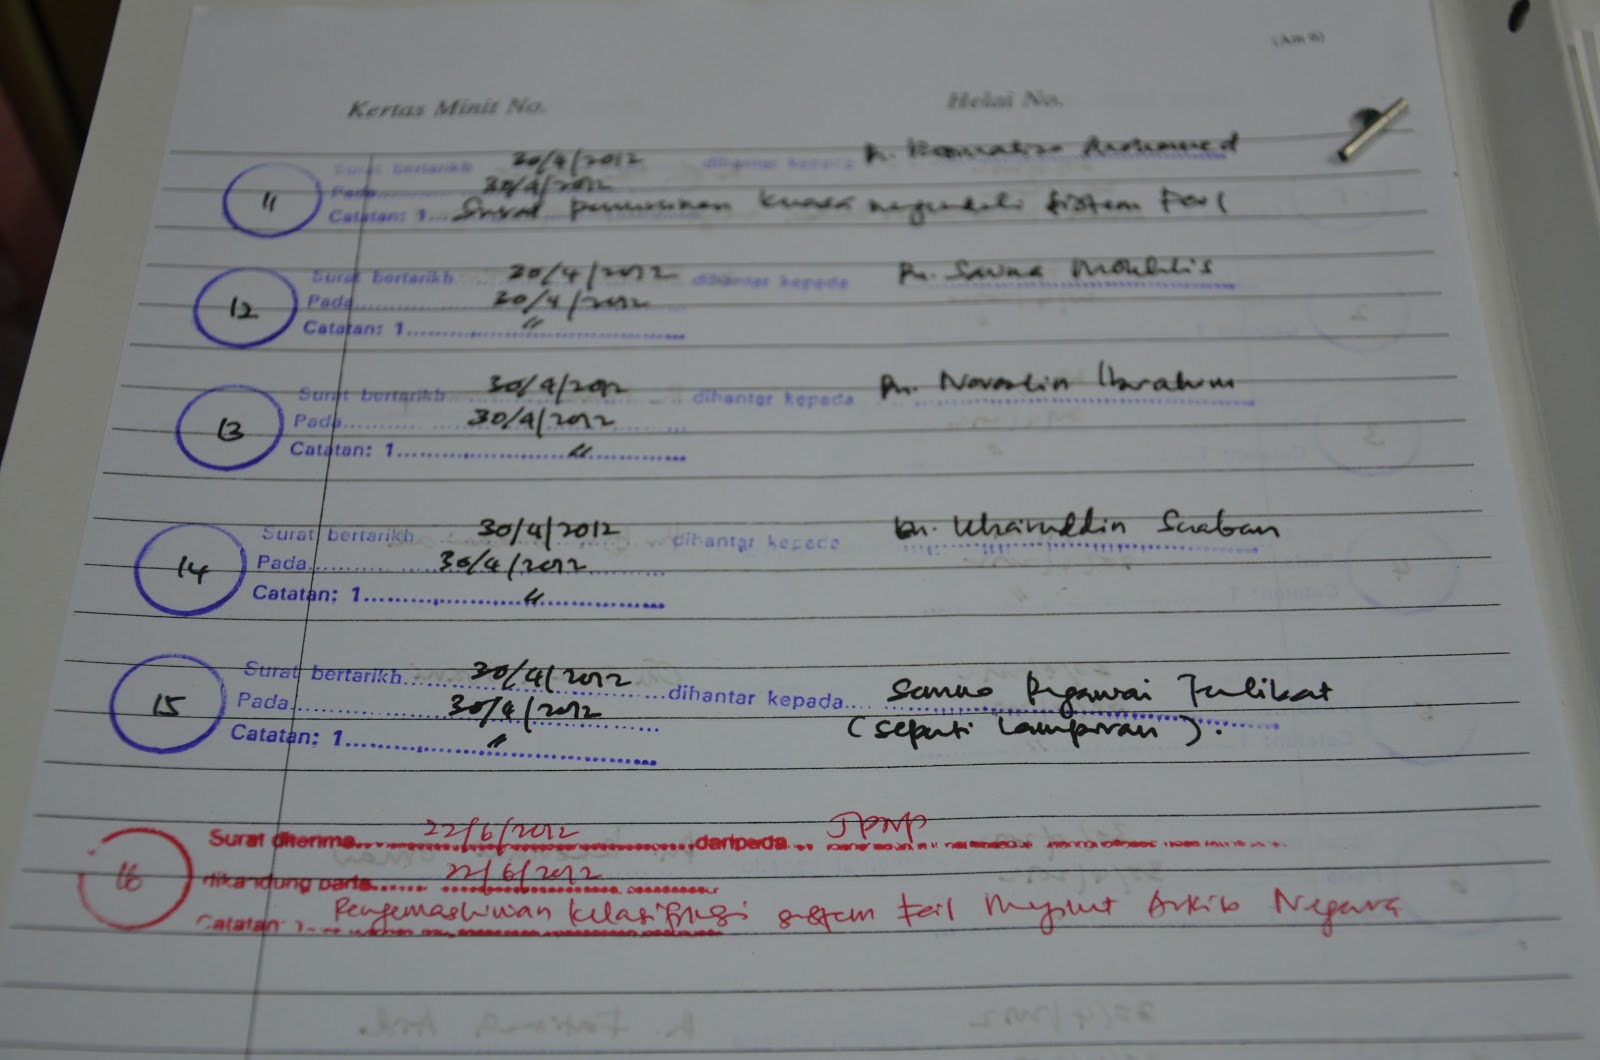 (Am 6)
Kertas Minit No. Helai No.
11 Surat bertarikh 30/4/2012 dihantar kepada
Pada 30/4/2012
Catatan: 1. Surat penurunan kuasa sistem
12 Surat bertarikh 30/4/2012 dihantar kepada Pn.
Pada 30/4/2012
Catatan: 1 "
13 Surat bertarikh 30/4/2012 dihantar kepada Pn. Ibrahim
Pada 30/4/2012
Catatan: 1 "
14 Surat bertarikh 30/4/2012 dihantar kepada En. Khairuddin Saaban
Pada 30/4/2012
Catatan: 1 "
15 Surat bertarikh 30/4/2012 dihantar kepada Semua Pegawai
Pada 30/4/2012 (seperti Lampiran).
Catatan: 1 "
16 Surat diterima 22/6/2012 daripada
dikandung pada 22/6/2012
Catatan 1 sistem fail Arkib Negara